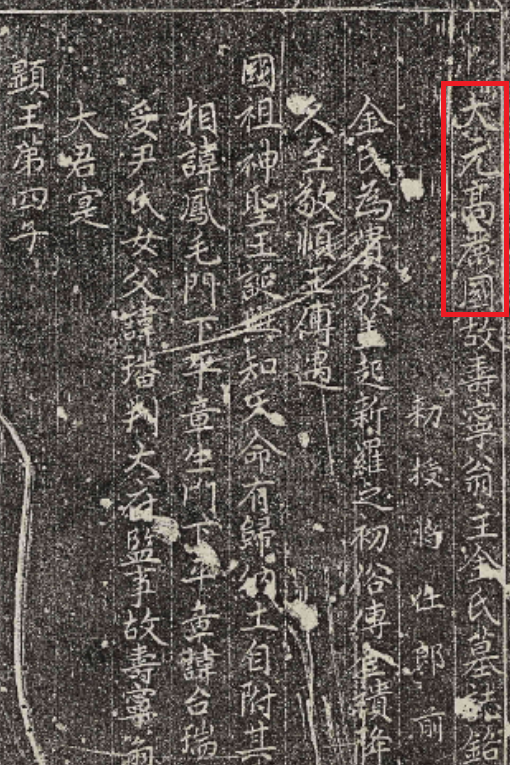 大元高麗國故壽寧翁主金氏墓誌銘
勑授將仕郎前
金氏為貴族盖起新羅之初俗傳金樻降
入至敬順王傅遇
國祖神聖王謳興知天命有歸納土自附其
相諱鳳毛門下平章生門下平章諱台瑞
受尹氏女父諱璠判大府監事故壽寧翁
大君寔
顯王第四子